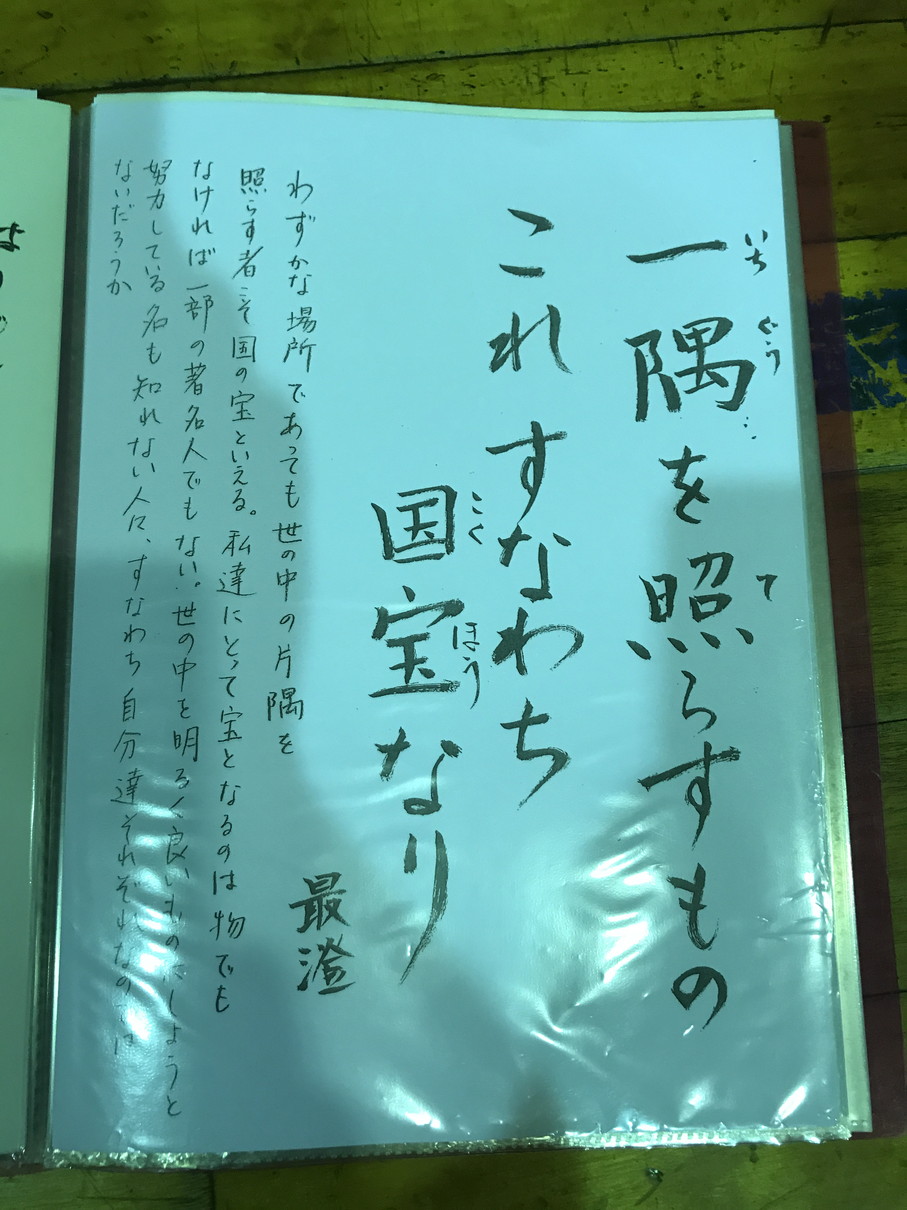 一隅を照らすもの
いち
ぐう
て
これ すなわち
国宝なり
こく
ほう
最澄
わずかな場所であっても世の中の片隅を
照らす者こそ国の宝といえる。私達にとって宝となるのは物でも
なければ一部の著名人でもない。世の中を明るく良いものにしようと
努力している名も知れない人々、すなわち自分達それぞれなのでは
ないだろうか